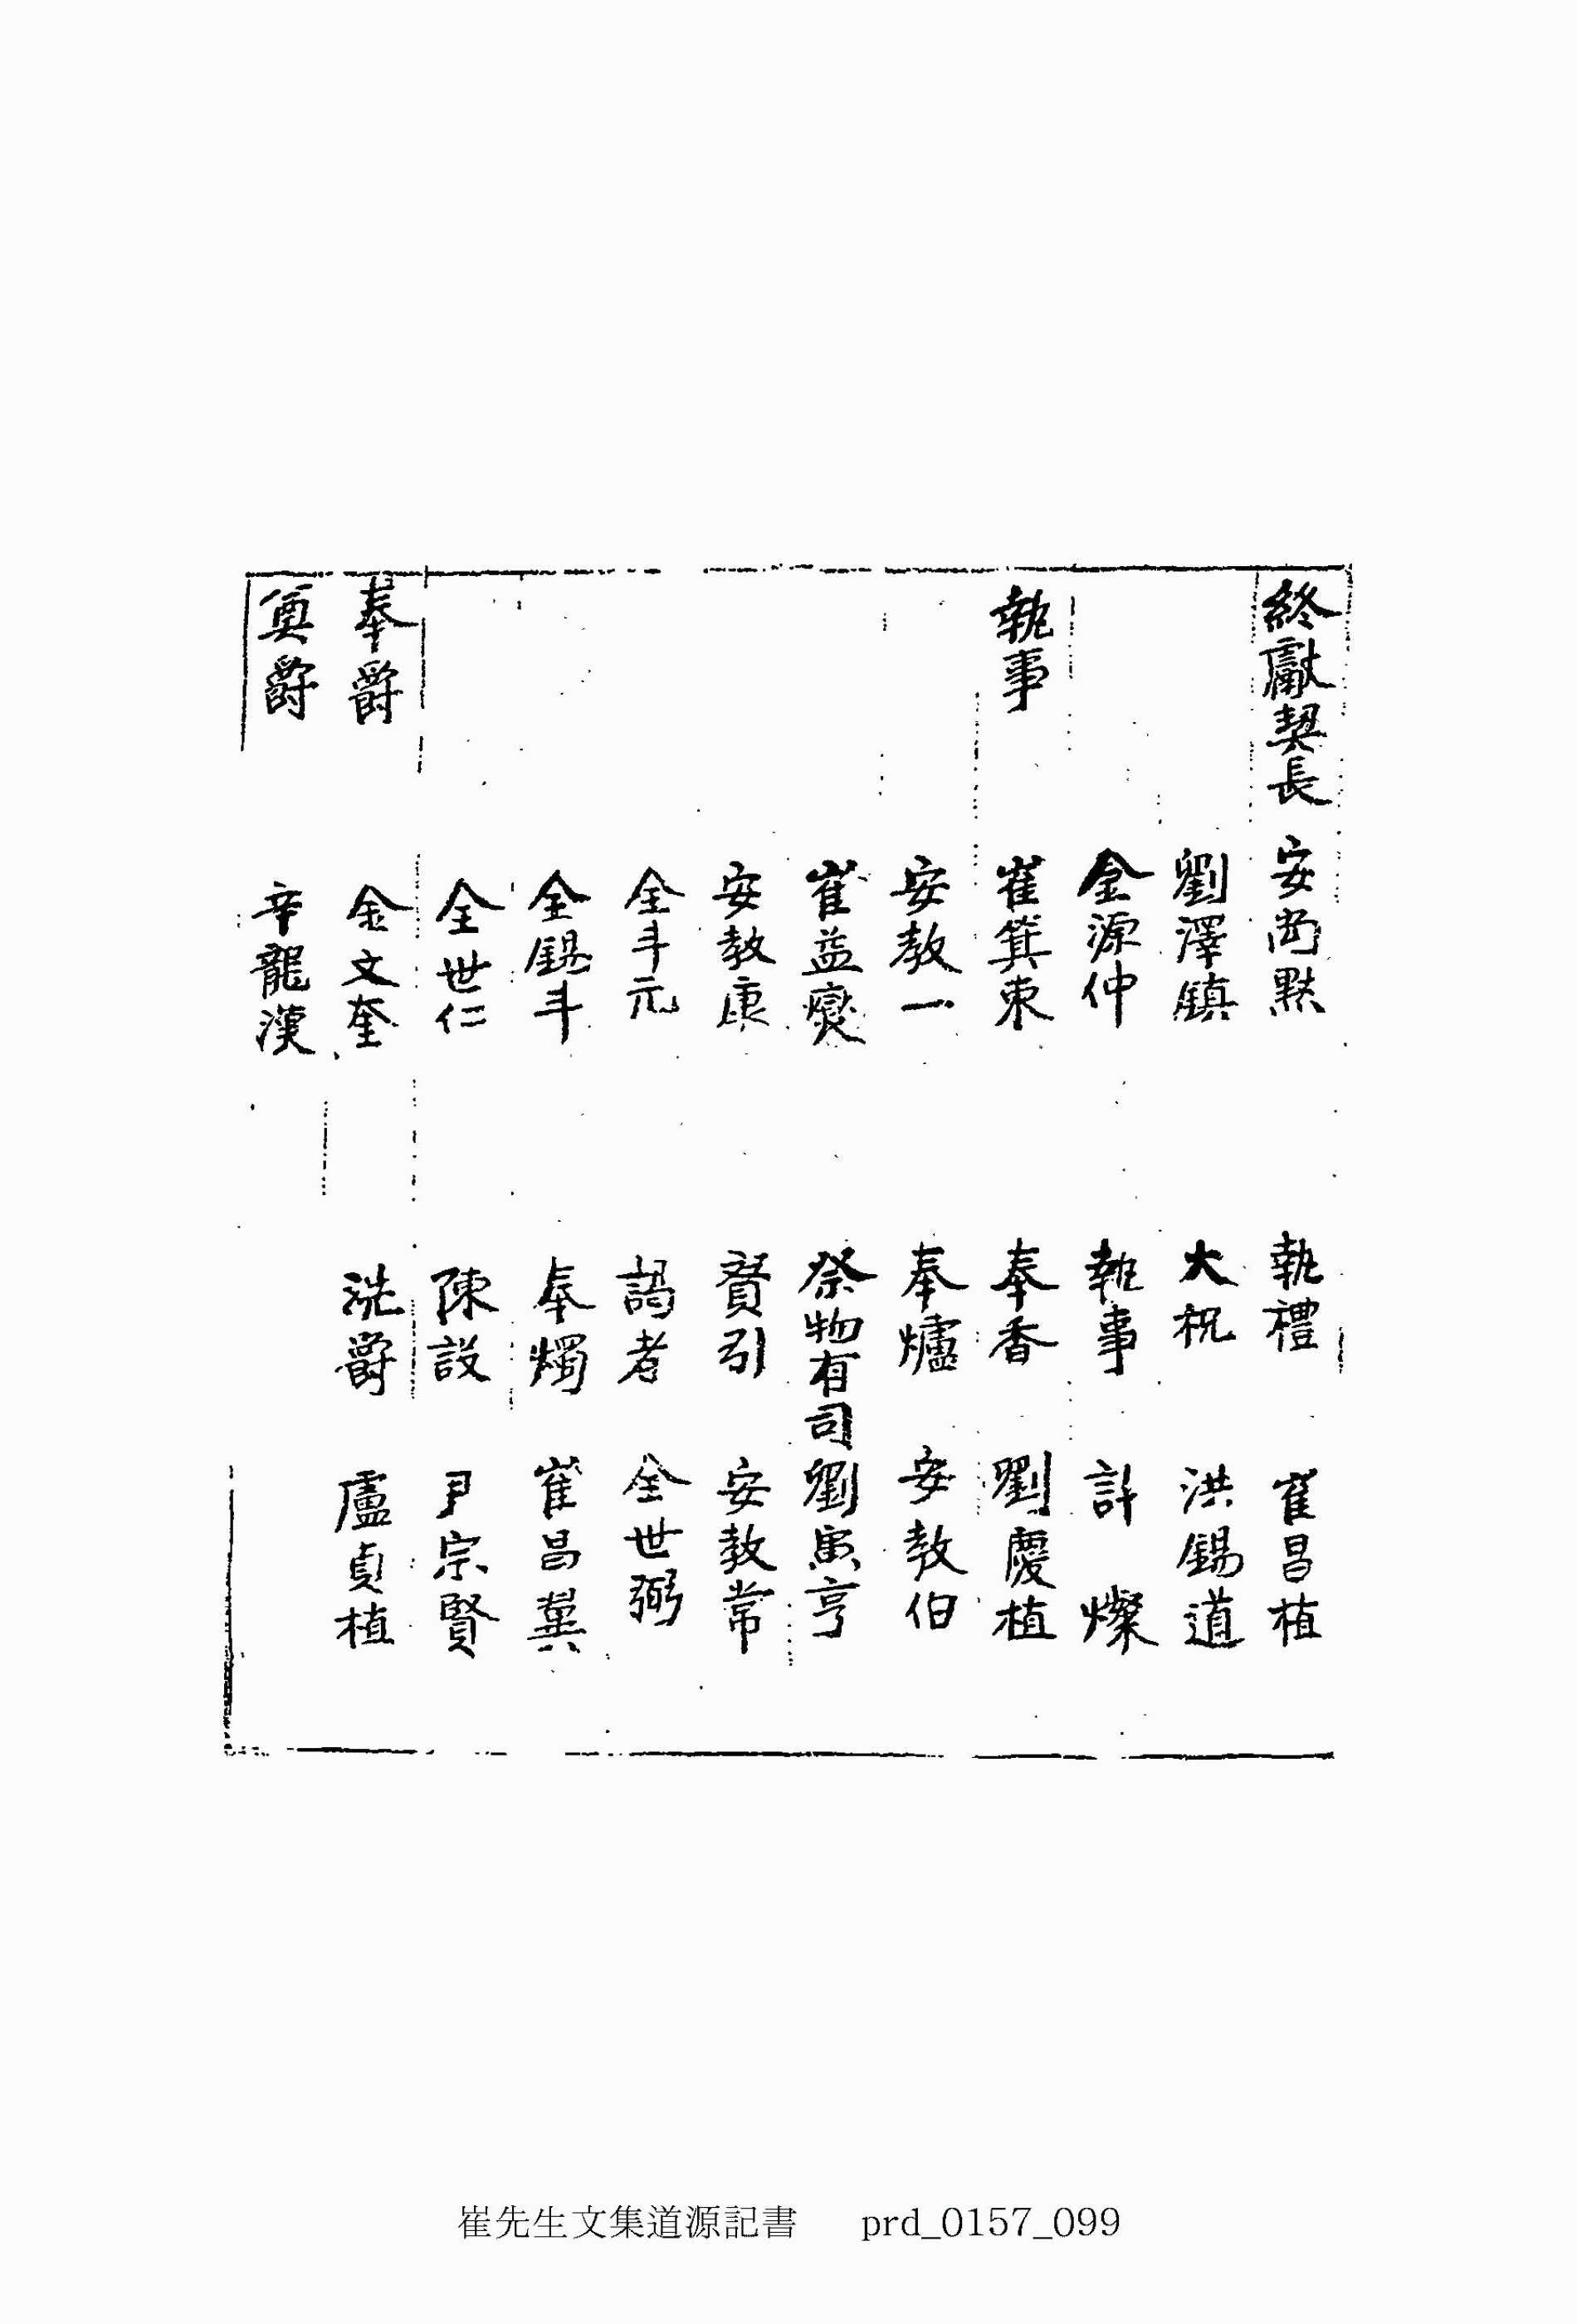 終獻契長 安尙默 執禮 崔昌植
劉澤鎭 大祝 洪錫道
金源仲 執事 許燦
執事 崔箕東 奉香 劉慶植
安教一 奉爐 安教伯
崔益燮 祭物有司 劉寅亨
安教康 贊引 安教常
全斗元 謁者 全世弼
全錫斗 奉燭 崔昌冀
全世仁 陳設 尹宗賢
奉爵 金文奎 洗爵 盧貞植
奠爵 辛龍漢
崔先生文集道源記書 prd_0157_099